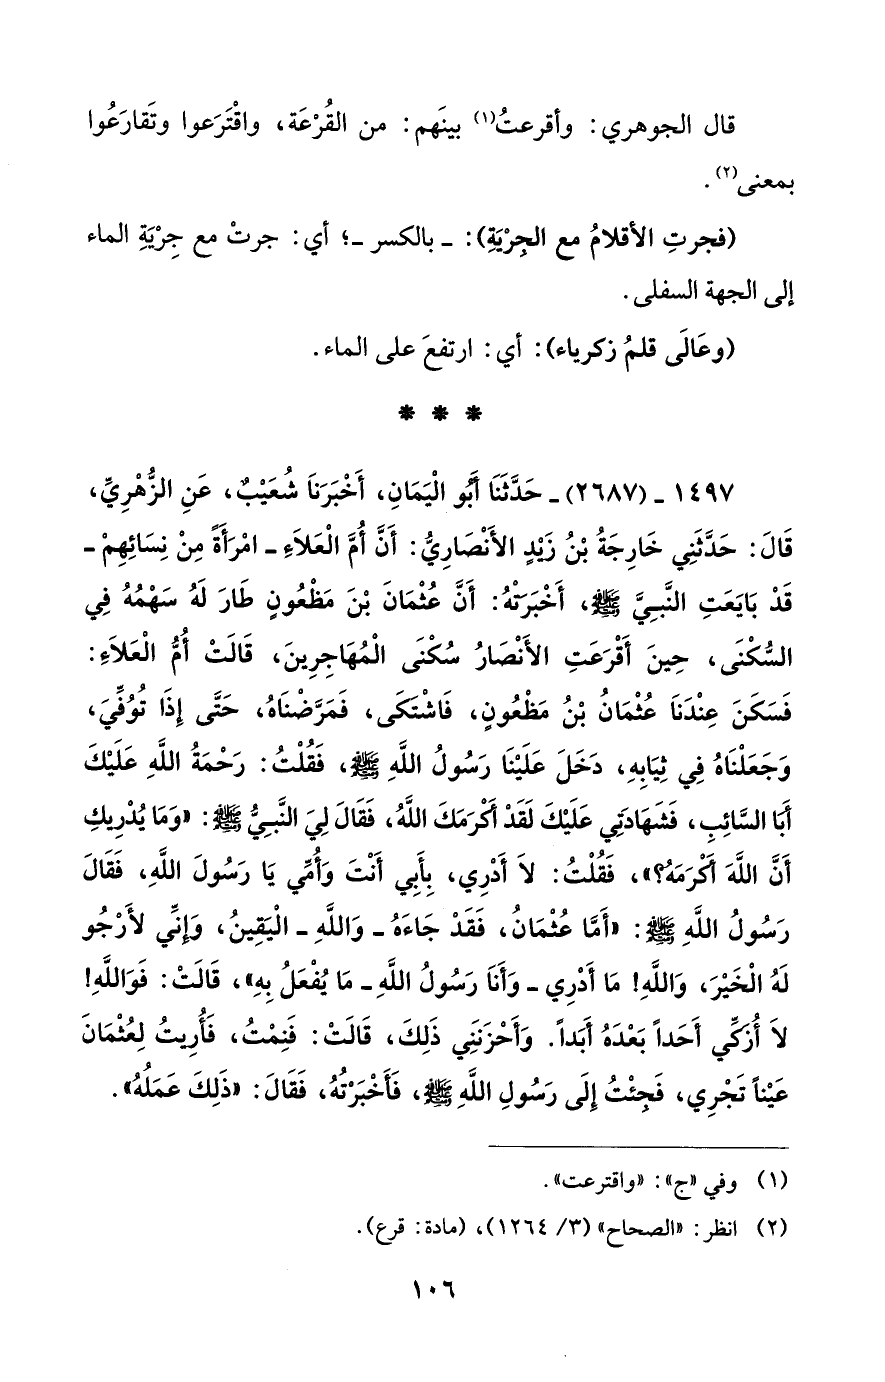 قال الجوهري: وأقرعتُ(١) بينَهم: من القُرْعَة، واقْتَرَعوا وتَقارَعُوا
بمعنى(٢).
(فجرتِ الأقلامُ مع الجِرْيَةِ): - بالكسر -؛ أي: جرتْ مع جِرْيَةِ الماء
إلى الجهة السفلى.
(وعَالَى قلمُ زكرياء): أي: ارتفعَ على الماء.
* * *
١٤٩٧ - (٢٦٨٧) - حَدَّثَنَا أَبُو الْيَمَانِ، أَخْبَرَنَا شُعَيْبٌ، عَنِ الزُّهْرِيِّ،
قَالَ: حَدَّثَنِي خَارِجَةُ بْنُ زَيْدٍ الأَنْصَارِيُّ: أَنَّ أُمَّ الْعَلاَءِ - امْرَأَةً مِنْ نِسَائِهِمْ -
قَدْ بَايَعَتِ النَّبِيَّ ﷺ، أَخْبَرَتْهُ: أَنَّ عُثْمَانَ بْنَ مَظْعُونٍ طَارَ لَهُ سَهْمُهُ فِي
السُّكْنَى، حِينَ أَقْرَعَتِ الأَنْصَارُ سُكْنَى الْمُهَاجِرِينَ، قَالَتْ أُمُّ الْعَلاَءِ:
فَسَكَنَ عِنْدَنَا عُثْمَانُ بْنُ مَظْعُونٍ، فَاشْتَكَى، فَمَرَّضْنَاهُ، حَتَّى إِذَا تُوُفِّيَ،
وَجَعَلْنَاهُ فِي ثِيَابِهِ، دَخَلَ عَلَيْنَا رَسُولُ اللَّهِ ﷺ، فَقُلْتُ: رَحْمَةُ اللَّهِ عَلَيْكَ
أَبَا السَّائِبِ، فَشَهَادَتِي عَلَيْكَ لَقَدْ أَكْرَمَكَ اللَّهُ، فَقَالَ لِيَ النَّبِيُّ ﷺ: «وَمَا يُدْرِيكِ
أَنَّ اللَّهَ أَكْرَمَهُ؟»، فَقُلْتُ: لاَ أَدْرِي، بِأَبِي أَنْتَ وَأُمِّي يَا رَسُولَ اللَّهِ، فَقَالَ
رَسُولُ اللَّهِ ﷺ: «أَمَّا عُثْمَانُ، فَقَدْ جَاءَهُ - وَاللَّهِ - الْيَقِينُ، وَإِنِّي لأَرْجُو
لَهُ الْخَيْرَ، وَاللَّهِ! مَا أَدْرِي - وَأَنَا رَسُولُ اللَّهِ - مَا يُفْعَلُ بِهِ»، قَالَتْ: فَوَاللَّهِ!
لاَ أُزَكِّي أَحَداً بَعْدَهُ أَبَداً. وَأَحْزَنَنِي ذَلِكَ، قَالَتْ: فَنِمْتُ، فَأُرِيتُ لِعُثْمَانَ
عَيْناً تَجْرِي، فَجِئْتُ إِلَى رَسُولِ اللَّهِ ﷺ، فَأَخْبَرْتُهُ، فَقَالَ: «ذَلِكَ عَمَلُهُ».
(١) وفي «ج»: «واقترعت».
(٢) انظر: «الصحاح» (٣/ ١٢٦٤)، (مادة: قرع).
١٠٦